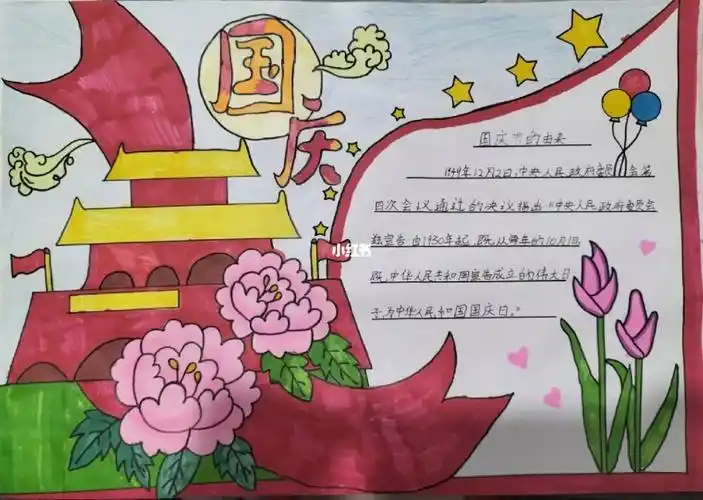 国庆
国庆节的由来
1949年12月2日,中央人民政府委员会第
四次会议通过的决议指出:"中央人民政府委员会
宣告:由1950年起,既从每年的10月1日
既中华人民共和国宣告成立的伟大日
子,为中华人民共和国国庆日。"
小红书